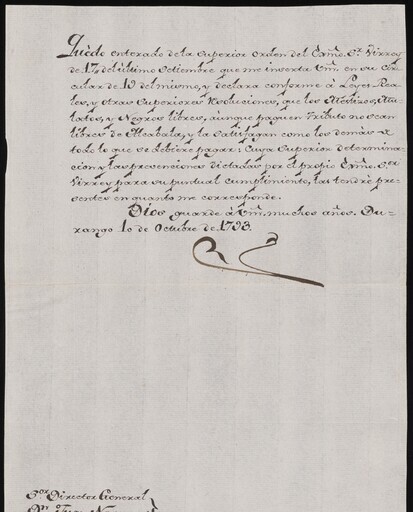 Quedo enterado dela Superior Orden del Exmo. Sr. Virrey
de 17 del último Setiembre que me inserta Vm. en su cir
cular de 10 del mismo, y declara conforme à Leyes Rea
les, y otras Superiores Resoluciones, que los Mestizos, Mu
latos, y Negros libres, aunque paguen Tributo no sean
libres de Alcabala, y la satisfagan como los demàs de
todo lo que se debiere pagar: Cuya Superior determina
cion y las prevenciones dictadas por el propio Exmo. Sor.
Virrey para su puntual cumplimiento, las tendrè pre
sentes en quanto me corresponde.
Dios guarde à Vm. muchos años. Du-
rango 1o de Octubre de 1793.
Sor. Director General
Dn. Juan